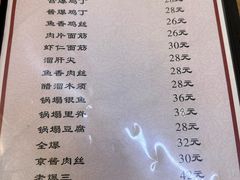 宫爆鸡丁 28元
酱爆鸡丁 28元
鱼香鸡丝 26元
肉片面筋 26元
虾仁面筋 30元
溜肝尖 28元
鱼香肉丝 28元
醋溜木须 28元
锅塌银鱼 36元
锅塌里脊 32元
锅塌豆腐
全爆 32元
京酱肉丝 30元
老爆三 42元